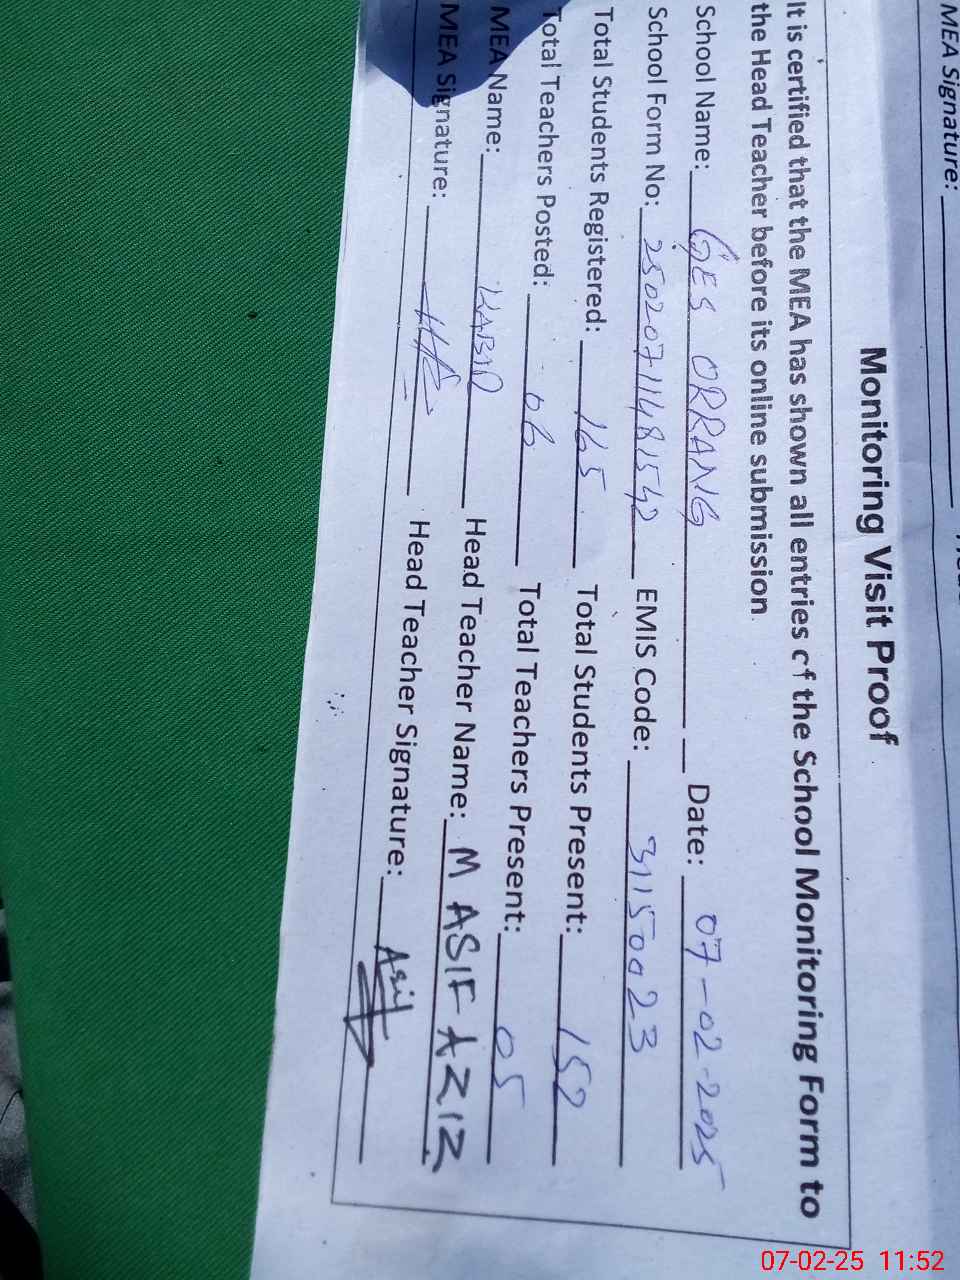 MEA Signature:
Monitoring Visit Proof
It is certified that the MEA has shown all entries of the School Monitoring Form to
the Head Teacher before its online submission.
School Name: GES ORRANG Date: 07-02-2025
School Form No: 25020711481542 EMIS Code: 31150023
Total Students Registered: 165 Total Students Present: 152
Total Teachers Posted: 06 Total Teachers Present: 05
MEA Name: Head Teacher Name: M ASIF AZIZ
MEA Signature: Head Teacher Signature: Asif
07-02-25 11:52